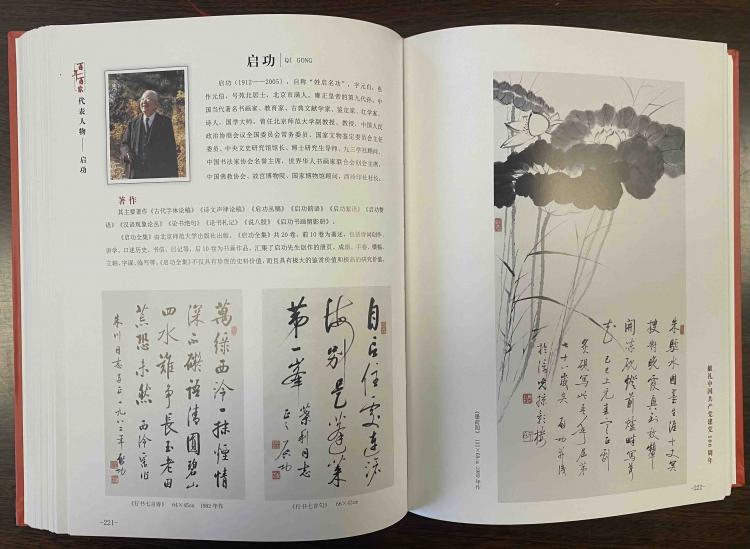 百年百家
代表人物——启功
启功
QI GONG
启功（1912——2005），自称“姓启名功”，字元白，也
作元伯，号苑北居士，北京市满人，雍正皇帝的第九代孙。中
国当代著名书画家、教育家、古典文献学家、鉴定家、红学家、
诗人，国学大师。曾任北京师范大学副教授、教授，中国人民
政治协商会议全国委员会常务委员、国家文物鉴定委员会主任
委员、中央文史研究馆馆长、博士研究生导师、九三学社顾问、
中国书法家协会名誉主席，世界华人书画家联合会创会主席、
中国佛教协会、故宫博物院、国家博物馆顾问，西泠印社社长。
著作
其主要著作《古代字体论稿》《诗文声律论稿》《启功丛稿》《启功韵语》《启功絮语》《启功赘
语》《汉语现象论丛》《论书绝句》《论书札记》《说八股》《启功书画留影册》。
《启功全集》由北京师范大学出版社出版。《启功全集》共20卷，前10卷为著述，包括诗词创作、
讲学、口述历史、书信、日记等，后10卷为书画作品，汇集了启功先生创作的册页、成扇、手卷、横幅、
立轴、字课、临写等。《启功全集》不仅具有珍贵的史料价值，而且具有极大的鉴赏价值和极高的研究价值。
萬绿西泠一抹煙情
深不礙語清圓碧山
四水難爭長玉老田
荒恐未然 西泠
同志 正 一九八二年 启功
《行书七言诗》 64×45cm 1982年作
自 住 連
海別是蓬萊
第一峯
同志
正之 启功
《行书七言句》 68×45cm
-221-
水国 生 十丈
對晚霞真
開凍硯燈前
己巳上元
七十八歲矣 启功
《墨荷图》 111×64cm 1989年作
献礼中国共产党建党100周年
-222-